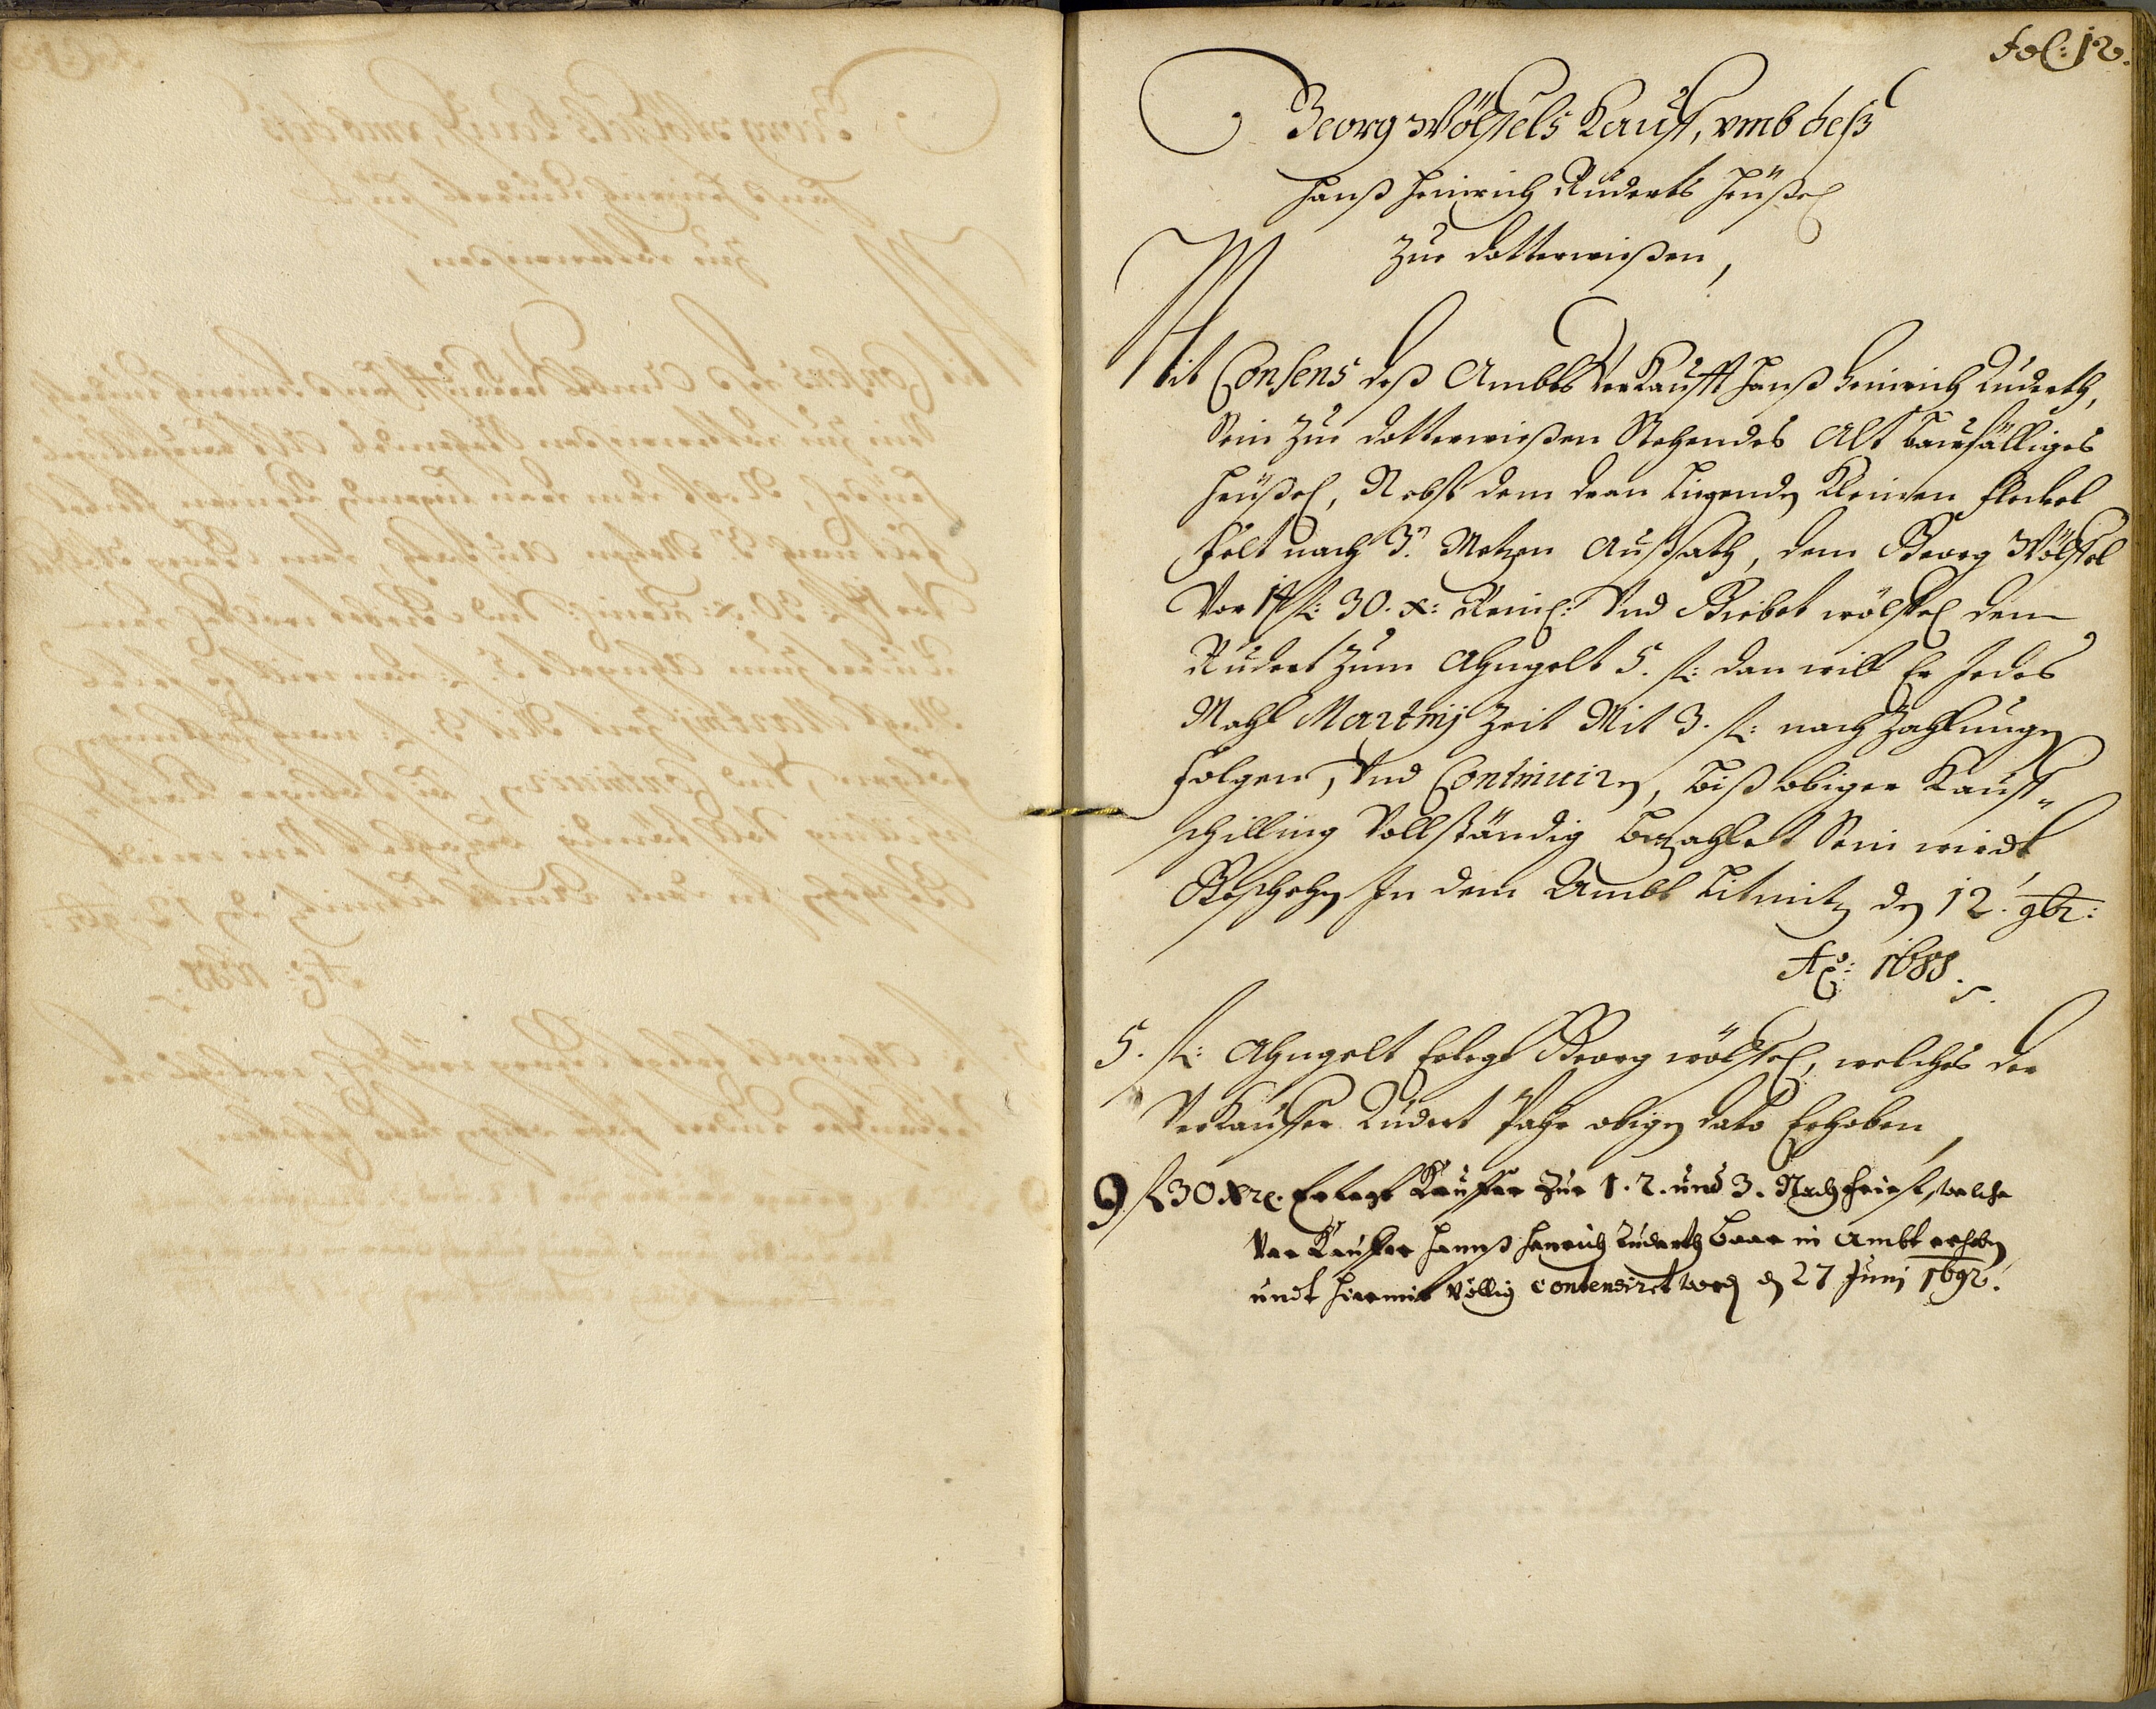 Fol: 12.
Georg Wölffels Kauff, vmb deß
Hanß Heinrich Ruderts Heußel
zur Dotterwießen,
Mit Consens deß Ambts Verkaufft Hanß Heinrich Ruderth,
Sein zur Dotterwießen Stehendes Alt Baufälliges
Heußel, Nebst dem dran Liegendn Kleinen fleckel
Felt nach 3n Metzen Außsath, dem Georg Wölffel
Vor 14 fl: 30. x: Reinl: Vnd Giebet wölffel dem
Rudert zum Ahngelt 5. fl: dan will Er Jedes
Mahl Martinij Zeit Mit 3. fl: nach Zahlungen
folgen, Vnd Continuirn, biß obiger Kauff„
schilling Vollständig bezahlet Sein wirdt
Geschehn In dem Ambt Litmitz den 12. 9br:
Ao: 1688.
5. fl: Ahngelt Erlegt Georg wölffel, welches der
Verkauffer Rudert Pahr obign dato Erhoben,
9 fl 30 Xr. Erlegt Kauffer zur 1. 2. und 3. Nachfrist, welche
Verkauffer Hannß Henrich Ruderth baar in Ambt erhobn
undt hiermit völlig contentiret wordn dn 27 Junj 1692.